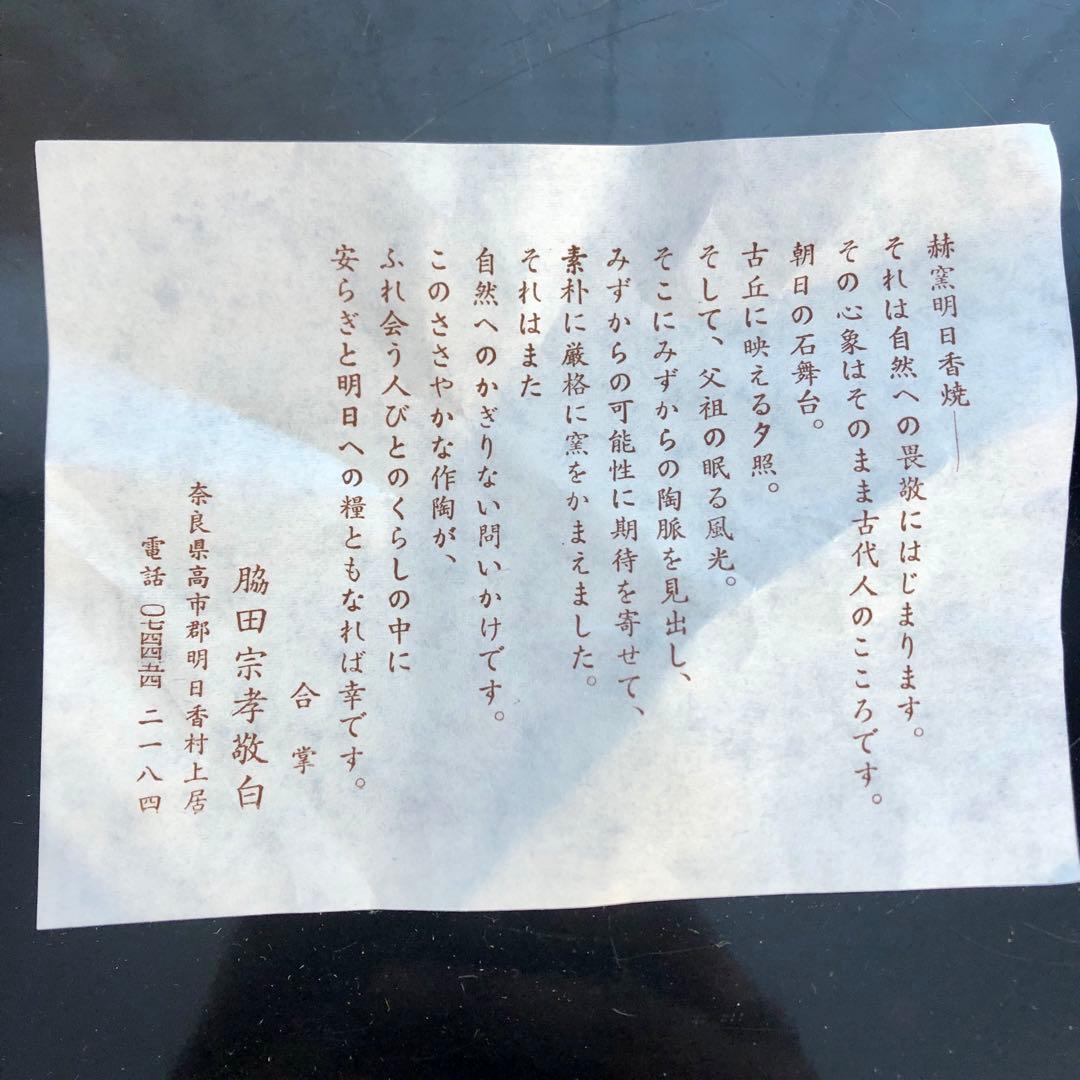 赫窯明日香焼――
それは自然への畏敬にはじまります。
その心象はそのまま古代人のこころです。
朝日の石舞台。
古丘に映える夕照。
そして、父祖の眠る風光。
そこにみずからの陶脈を見出し、
みずからの可能性に期待を寄せて、
素朴に厳格に窯をかまえました。
それはまた
自然へのかぎりない問いかけです。
このささやかな作陶が、
ふれ会う人びとのくらしの中に
安らぎと明日への糧ともなれば幸です。
合掌
脇田宗孝敬白
奈良県高市郡明日香村上居
電話 〇七四四五四 二一八四